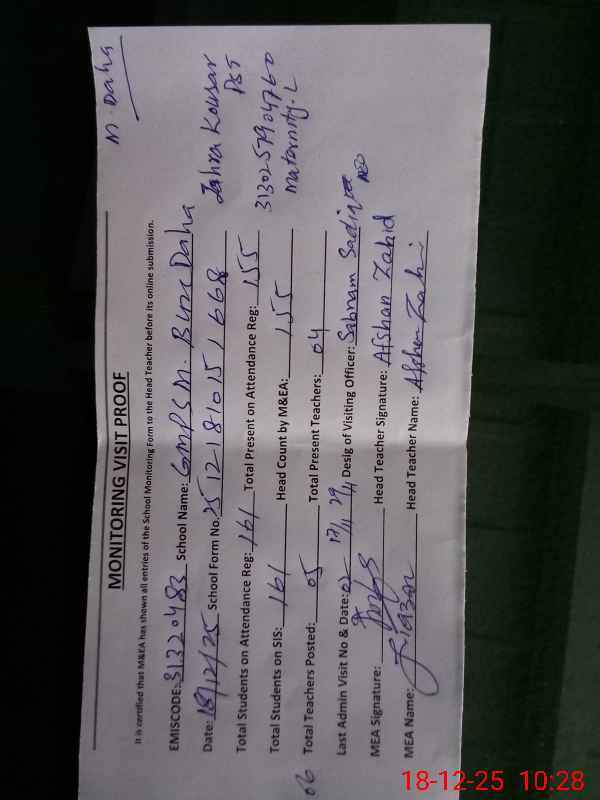 M. Daha
MONITORING VISIT PROOF
It is certified that M&EA has shown all entries of the School Monitoring Form to the Head Teacher before its online submission.
EMISCODE: 31320483 School Name: GMPS M. Bux Daha
Date: 18/12/25 School Form No. 25121810151668
Zahra Kousar
PST
Total Students on Attendance Reg: 161 Total Present on Attendance Reg: 155
3130257904760
Maternity. L
Total Students on SIS: 161 Head Count by M&EA: 155
06 Total Teachers Posted: 05 Total Present Teachers: 04
Last Admin Visit No & Date: 02 17/11 29/11 Desig of Visiting Officer: Sabnam Sadiq
MEA Signature: Head Teacher Signature: Afshan Zahid
MEA Name: Riazan Head Teacher Name: Afshan Zahi
18-12-25 10:28